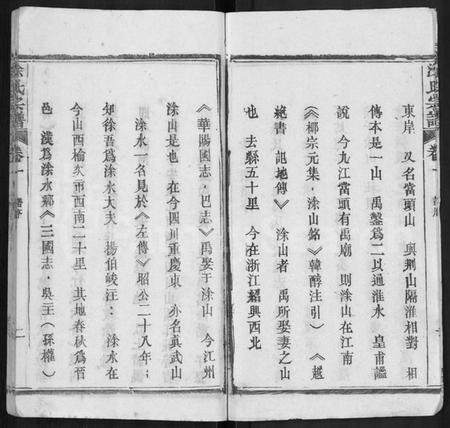 東岸　又名當頭山　與荆山隔淮相對　相
傳本是一山　禹鑿爲二以通淮水　皇甫謐
説　今九江當頭有禹廟　則涂山在江南
（《柳宗元集．涂山銘》韓醇注引）　《越
絶書　記地傳》　涂山者　禹所娶妻之山
也　去縣五十里　今在浙江紹興西北
《華陽國志．巴志》禹娶于涂山　今江州
涂山是也　在今四川重慶東　亦名真武山
涂水一名見於《左傳》昭公二十八年；
知徐吾爲涂水大夫　楊伯峻注：　涂水在
今山西榆次市西南二十里　其地春秋爲晉
邑　漢爲涂水鄉《三國志．吳主（孫權）
涂氏宗譜
卷一
二